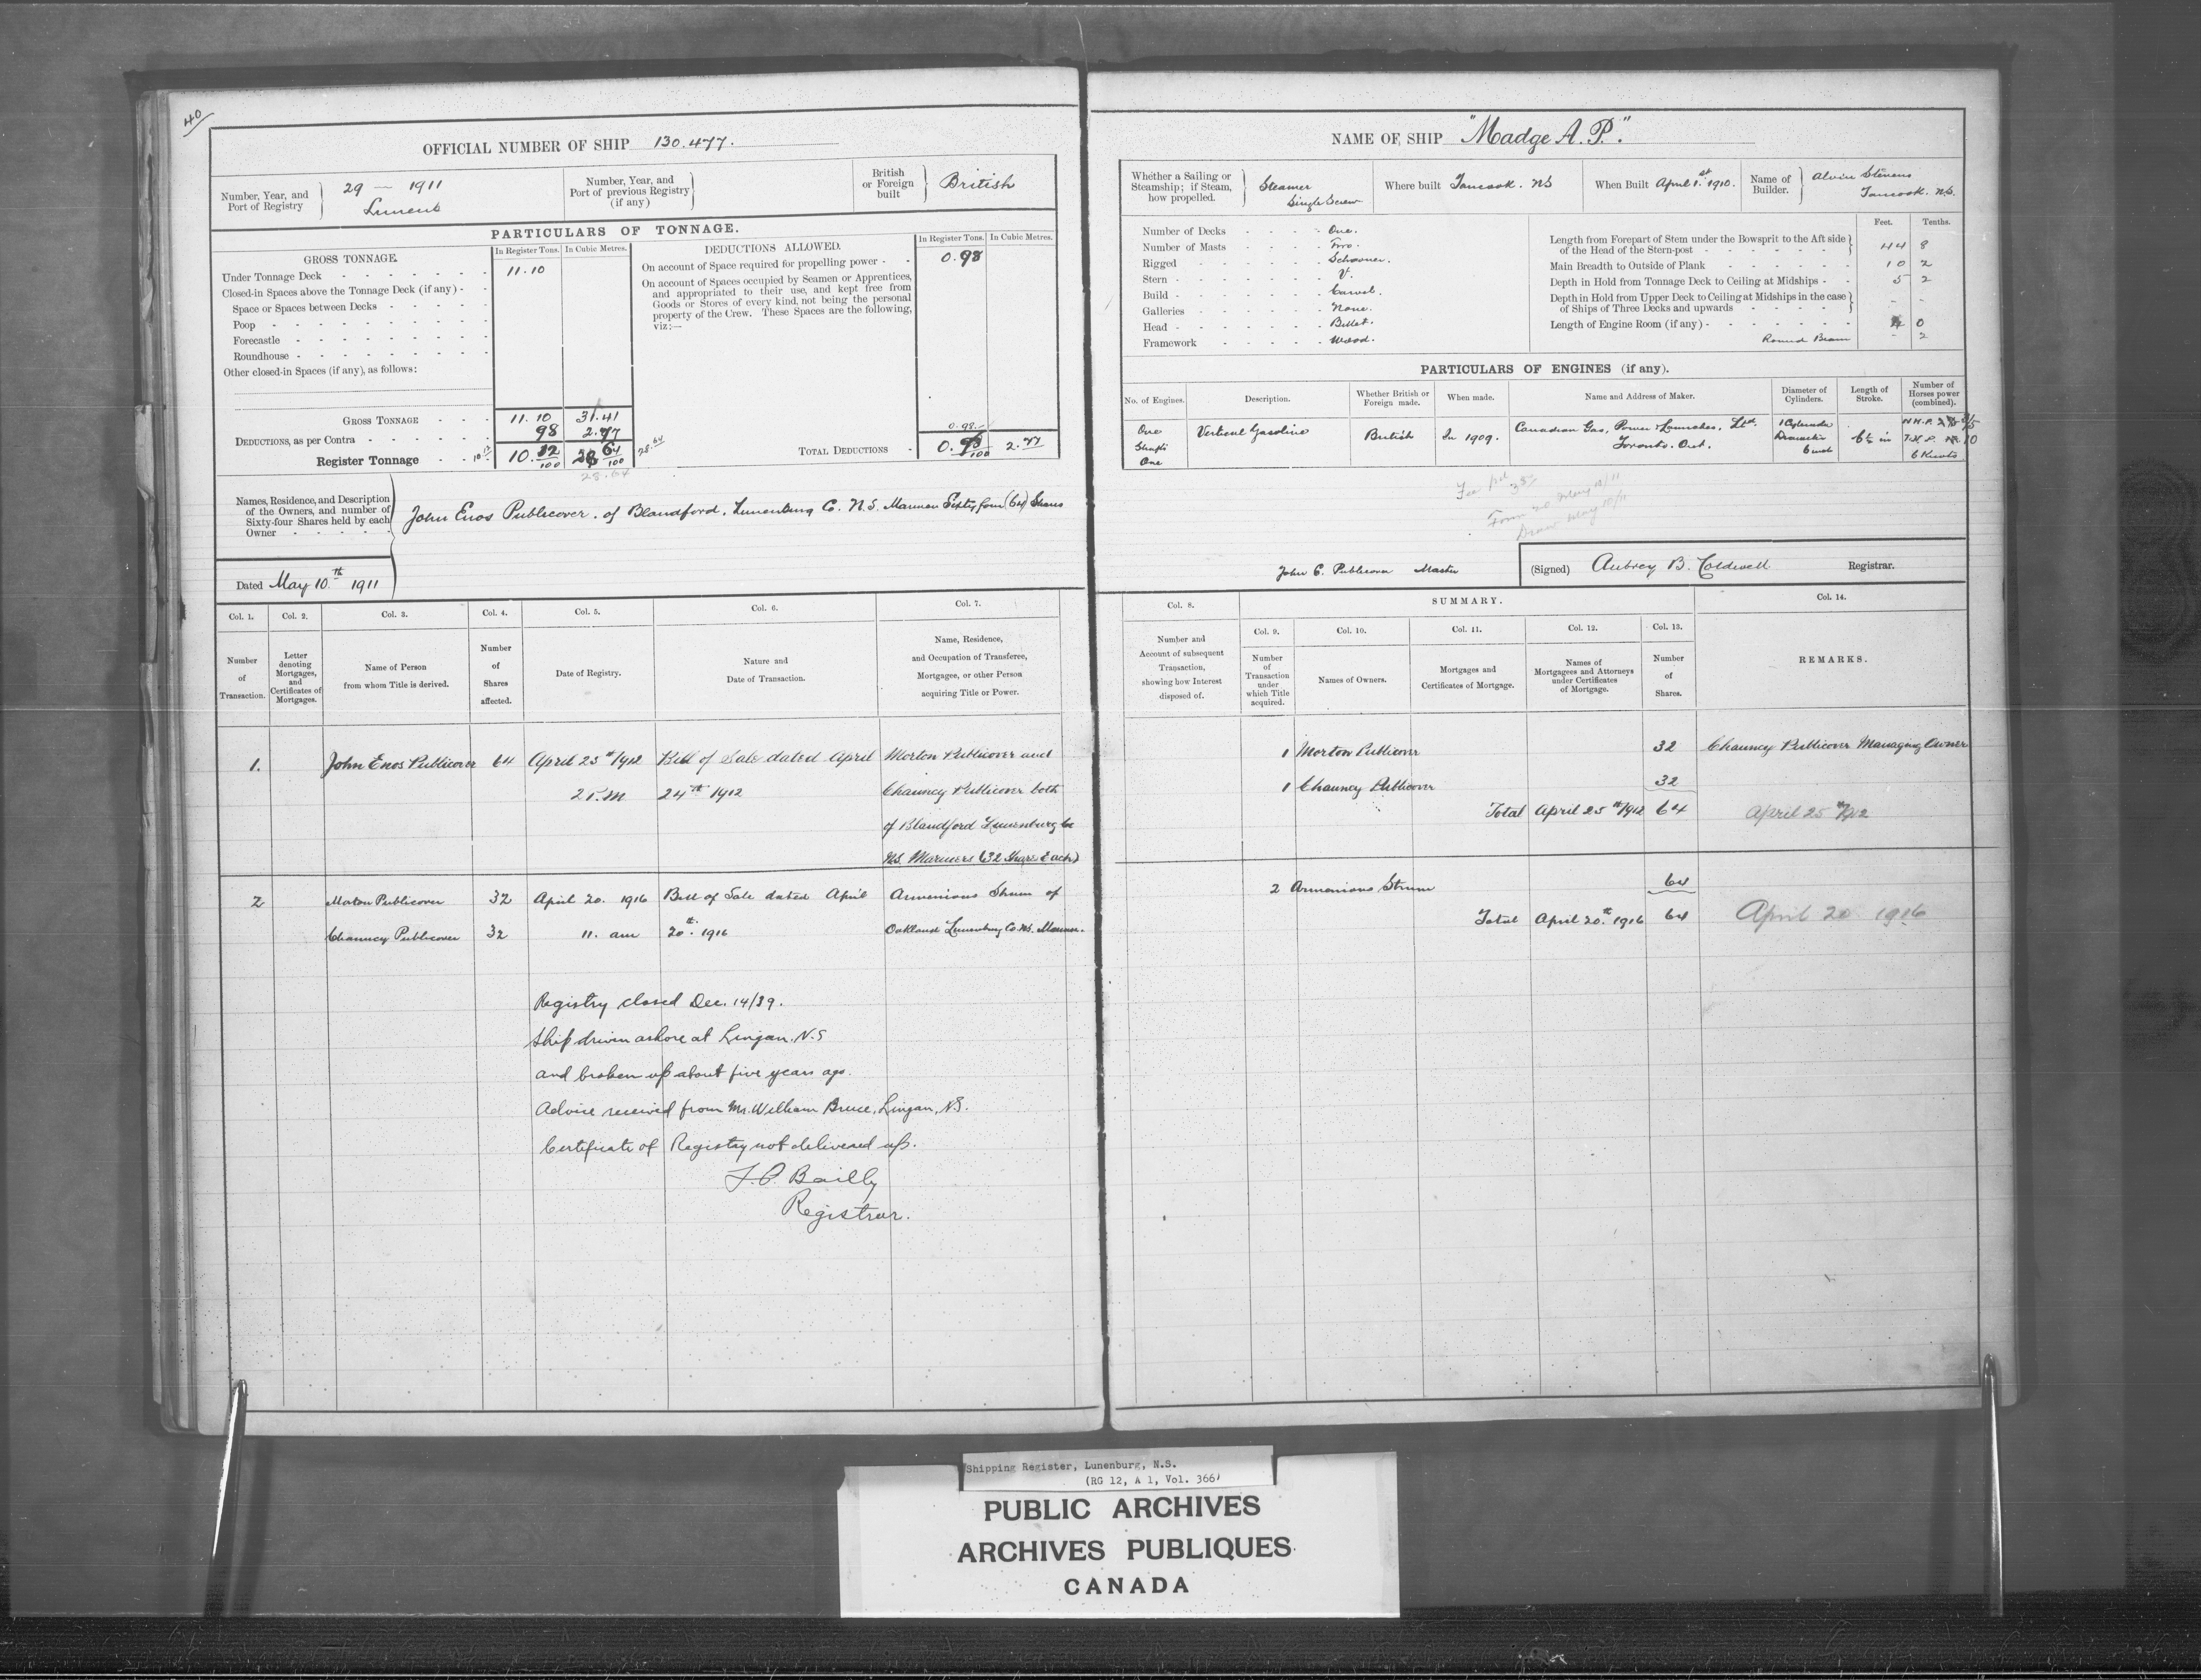 40
OFFICIAL NUMBER OF SHIP 130.477.
Number, Year, and Port of Registry
29 — 1911
Number, Year, and Port of previous Registry (if any)
British or Foreign built
British
PARTICULARS OF TONNAGE.
GROSS TONNAGE.
In Register Tons.
In Cubic Metres.
Under Tonnage Deck
11.10
Closed-in Spaces above the Tonnage Deck (if any)
Space or Spaces between Decks
Poop
Forecastle
Roundhouse
Other closed-in Spaces (if any), as follows:
GROSS TONNAGE 11.10 31.41
DEDUCTIONS, as per Contra 98 2.77
Register Tonnage 10.12/100 28 64/100
28.64
28.64
DEDUCTIONS ALLOWED.
In Register Tons.
In Cubic Metres.
On account of Space required for propelling power
0.98
On account of Spaces occupied by Seamen or Apprentices,
and appropriated to their use, and kept free from
Goods or Stores of every kind, not being the personal
property of the Crew. These Spaces are the following,
viz:—
0.98
TOTAL DEDUCTIONS 0.98/100 2.77
Names, Residence, and Description
of the Owners, and number of
Sixty-four Shares held by each
Owner
John Enos Publicover. of Blandford, Lunenburg Co. N.S. Mariner Sixty four (64) Shares
Dated May 10th 1911
Col. 1.
Number of Transaction.
Col. 2.
Letter denoting Mortgages, and Certificates of Mortgages.
Col. 3.
Name of Person from whom Title is derived.
Col. 4.
Number of Shares affected.
Col. 5.
Date of Registry.
Col. 6.
Nature and Date of Transaction.
Col. 7.
Name, Residence, and Occupation of Transferee, Mortgagee, or other Person acquiring Title or Power.
1. John Enos Publicover 64 April 25th/1912 Bill of Sale dated April Morton Publicover and
2 P.M 24th 1912 Chauncy Publicover both
of Blandford Lunenburg Co
N.S. Mariners (32 Share Each)
2 Moton Publicover 32 April 20. 1916 Bill of Sale dated April Armenious Strum of
Chauncy Publicover 32 11. am 20th. 1916 Oakland Lunenburg Co. NS. Mariner.
Registry closed Dec. 14/39.
Ship driven ashore at Lingan. N.S
and broken up about five years ago.
Advice received from Mr. William Bruce, Lingan, N.S.
Certificate of Registry not delivered up.
Bailly
Registrar.
NAME OF SHIP "Madge A. P."
Whether a Sailing or Steamship; if Steam, how propelled.
Steamer
Single Screw
Where built Tancook. NS
When Built April 1.st 1910.
Name of Builder.
Alvin Stevens
Tancook. N.S.
Number of Decks One.
Number of Masts Two.
Rigged Schooner.
Stern V.
Build Carvel.
Galleries None.
Head Billet.
Framework Wood.
Feet. Tenths.
Length from Forepart of Stem under the Bowsprit to the Aft side
of the Head of the Stern-post 44 8
Main Breadth to Outside of Plank 10 2
Depth in Hold from Tonnage Deck to Ceiling at Midships 5 2
Depth in Hold from Upper Deck to Ceiling at Midships in the case
of Ships of Three Decks and upwards - -
Length of Engine Room (if any) 4 0
Round Beam - 2
PARTICULARS OF ENGINES (if any).
No. of Engines.
Description.
Whether British or Foreign made.
When made.
Name and Address of Maker.
Diameter of Cylinders.
Length of Stroke.
Number of Horses power (combined).
One
Shafts
One
Vertical Gasoline
British
In 1909.
Canadian Gas, Power & Launches, Ltd.
Toronto. Ont.
1 Cylinder
Diameter
6 inch
6½ in
N.H.P.
I.H.P. 10
6 Knots
Fee pd
Form 20 May 10/11
May 10/11
John E. Publicover Master
(Signed) Aubrey B. Coldwell Registrar.
Col. 8.
Number and Account of subsequent Transaction, showing how Interest disposed of.
SUMMARY.
Col. 9.
Number of Transaction under which Title acquired.
Col. 10.
Names of Owners.
Col. 11.
Mortgages and Certificates of Mortgage.
Col. 12.
Names of Mortgagees and Attorneys under Certificates of Mortgage.
Col. 13.
Number of Shares.
Col. 14.
REMARKS.
1 Morton Publicover 32 Chauncy Publicover Managing Owner
1 Chauncy Publicover 32
Total April 25th/1912 64 April 25th 1912
2 Armenious Strum 64
Total April 20.th 1916 64 April 20 1916
Shipping Register, Lunenburg, N.S.
(RG 12, A 1, Vol. 366)
PUBLIC ARCHIVES
ARCHIVES PUBLIQUES
CANADA